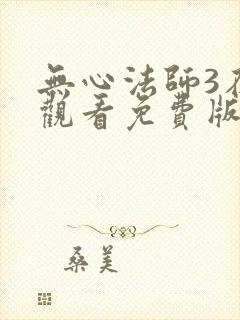 無心法師3
觀看免費版
桑美